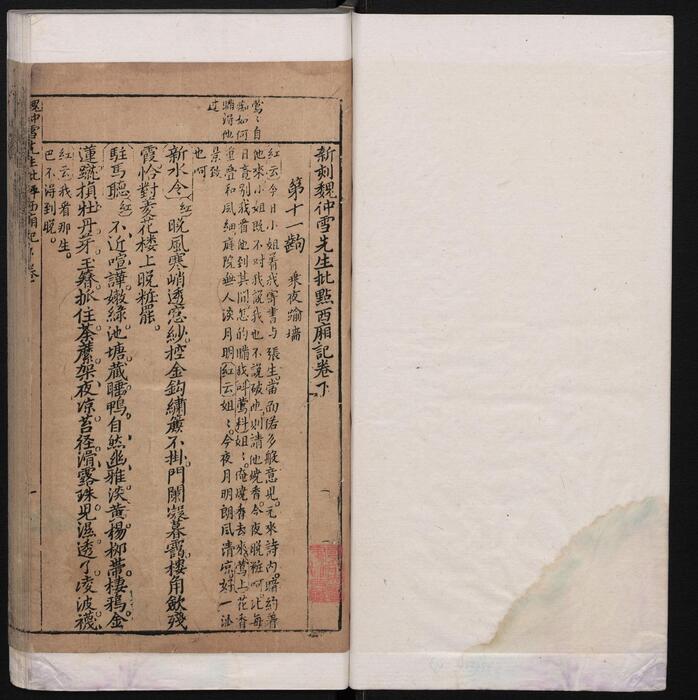 新刻魏仲雪先生批點西廂記卷下
第十一齣 乘夜踰墻
紅云今日小姐着我寄書與張生當面偌多般意兒元來詩內暗約着
他來小姐既不對我說我也不說破他則請他燒香今夜晚粧呵比每
日竟別我看他到其間怎的瞞我呌鶯科姐姐俺燒香去來鶯上花香
重疊和風細庭院無人淡月明紅云姐姐今夜月明朗風清凉好一派
景致
也呵
鶯鶯自
新水令紅晚風寒峭透窓紗控金鈎繡簾不掛門闌凝暮靄樓角歛殘
霞恰對菱花樓上晚粧罷
駐馬聽紅不近喧譁嫩綠池塘藏睡鴨自然幽雅淡黃楊柳帶棲鴉金
蓮蹴損牡丹芽玉簪抓住荼蘼架夜凉苔徑滑露珠兒濕透了凌波襪
紅云我看那生
巴不得到晚
魏仲雪先生批評西廂記卷
一